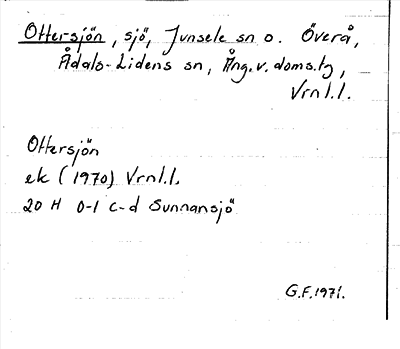 Ottersjön, sjö, Junsele sn o. Överå,
Ådals-Lidens sn, Ång.v.doms.tg,
Vrnl.l.
Ottersjön
ek (1970) Vrnl.l.
20 H 0-1 c-d Sunnansjö
G.F.1971.